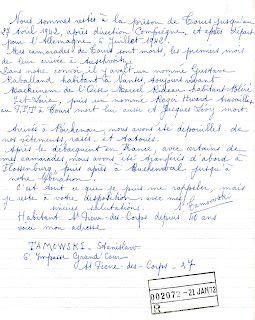 Nous sommes restés à la prison de Tours jusqu'au
17 Avril 1942, après direction Compiègne, et après départ
pour l'Allemagne (6 Juillet 1942).
Mes camarades de Tours sont morts, les premiers mois
de leur arrivée à Auschwitz
Dans notre convoi il y avait un nommé Gustave
Raballand habitant la Vantés toujours vivant
de l'Oise Marcel habitant Bléré
et Loire, puis un nommé Roger travaillait
au P.T.T à Tours mort lui aussi et Jacques mort.
Arrivés à Birkenau nous avons été dépouillés de
nos vêtements, rasés et tatoués.
Après le débarquement en France, avec certains de
mes camarades, nous avons été transférés d'abord à
Flossenburg, puis après à Buchenwal jusqu'à
notre libération.
C'est tout ce que je puis me rappeler, mais
je reste à votre disposition avec mes
sincères salutations. Tamowski
Habitant St Pierre-des-Corps depuis 50 ans
voici mon adresse
TAMOWSKI - Stanislaw
6. Impasse Grand Cour
St Pierre-des-Corps - 37
002072 -21 JAN 72
R